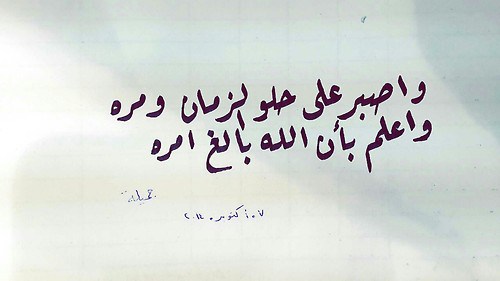 واصبر على حلو لزمان ومره
واعلم بأن الله بألغ امره
جميلة
٠٧ أكتوبر ٢٠١٤